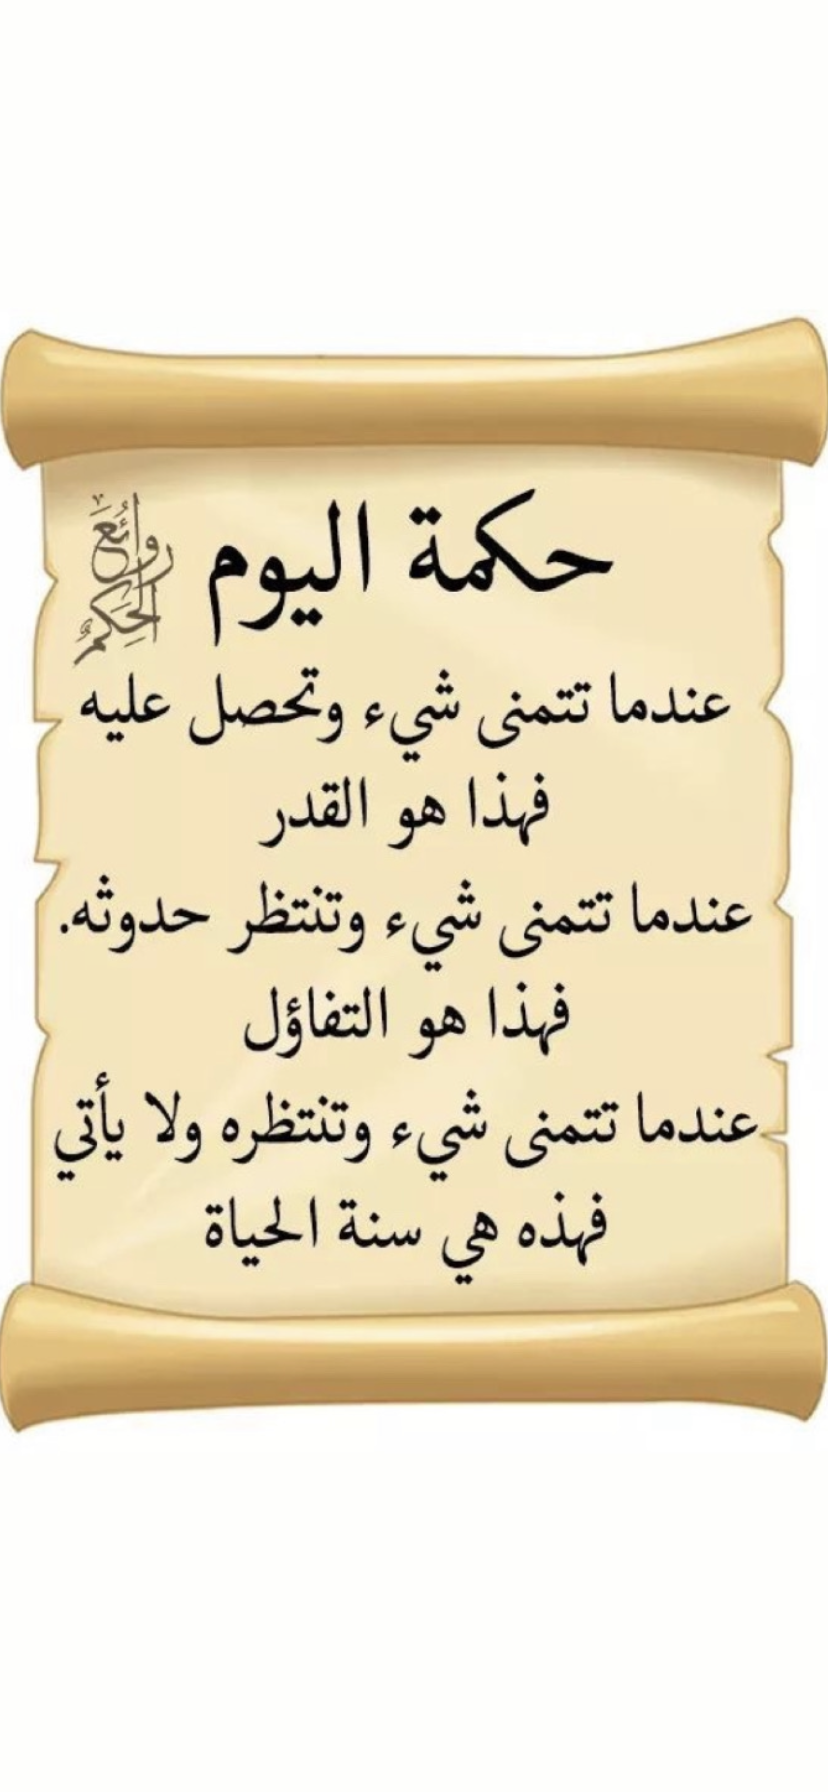 حكمة اليوم
روائع
الحكم
عندما تتمنى شيء وتحصل عليه
فهذا هو القدر
عندما تتمنى شيء وتنتظر حدوثه.
فهذا هو التفاؤل
عندما تتمنى شيء وتنتظره ولا يأتي
فهذه هي سنة الحياة